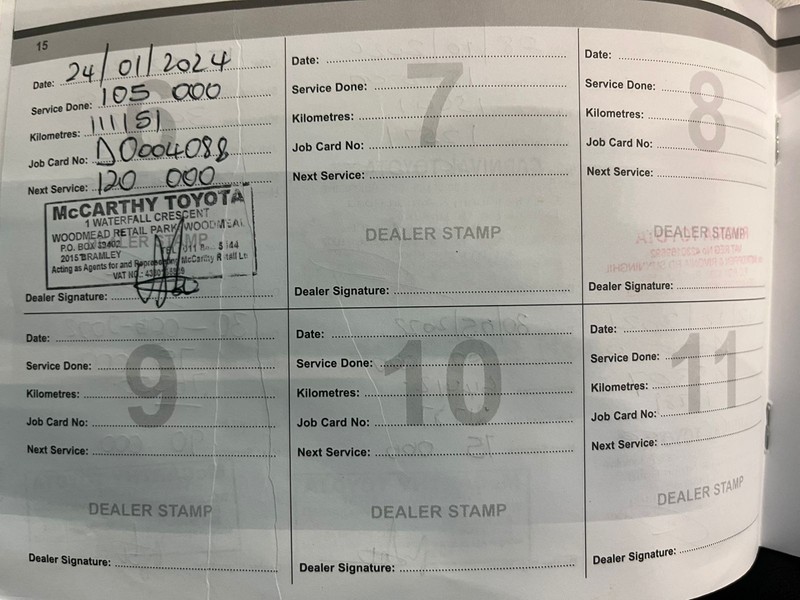 15
Date: 24/01/2024
Service Done: 105 000
Kilometres: 111151
Job Card No: D0004088
Next Service: 120 000
6
DEALER STAMP
McCARTHY TOYOTA
1 WATERFALL CRESCENT
WOODMEAD RETAIL PARK, WOODMEAD
P.O. BOX
2015 BRAMLEY
Acting as Agents for and Representing McCarthy Retail Lt
VAT NO.:
Dealer Signature:
7
Date:
Service Done:
Kilometres:
Job Card No:
Next Service:
DEALER STAMP
Dealer Signature:
8
Date:
Service Done:
Kilometres:
Job Card No:
Next Service:
DEALER STAMP
Dealer Signature:
9
Date:
Service Done:
Kilometres:
Job Card No:
Next Service:
DEALER STAMP
Dealer Signature:
10
Date:
Service Done:
Kilometres:
Job Card No:
Next Service:
DEALER STAMP
Dealer Signature:
11
Date:
Service Done:
Kilometres:
Job Card No:
Next Service:
DEALER STAMP
Dealer Signature: